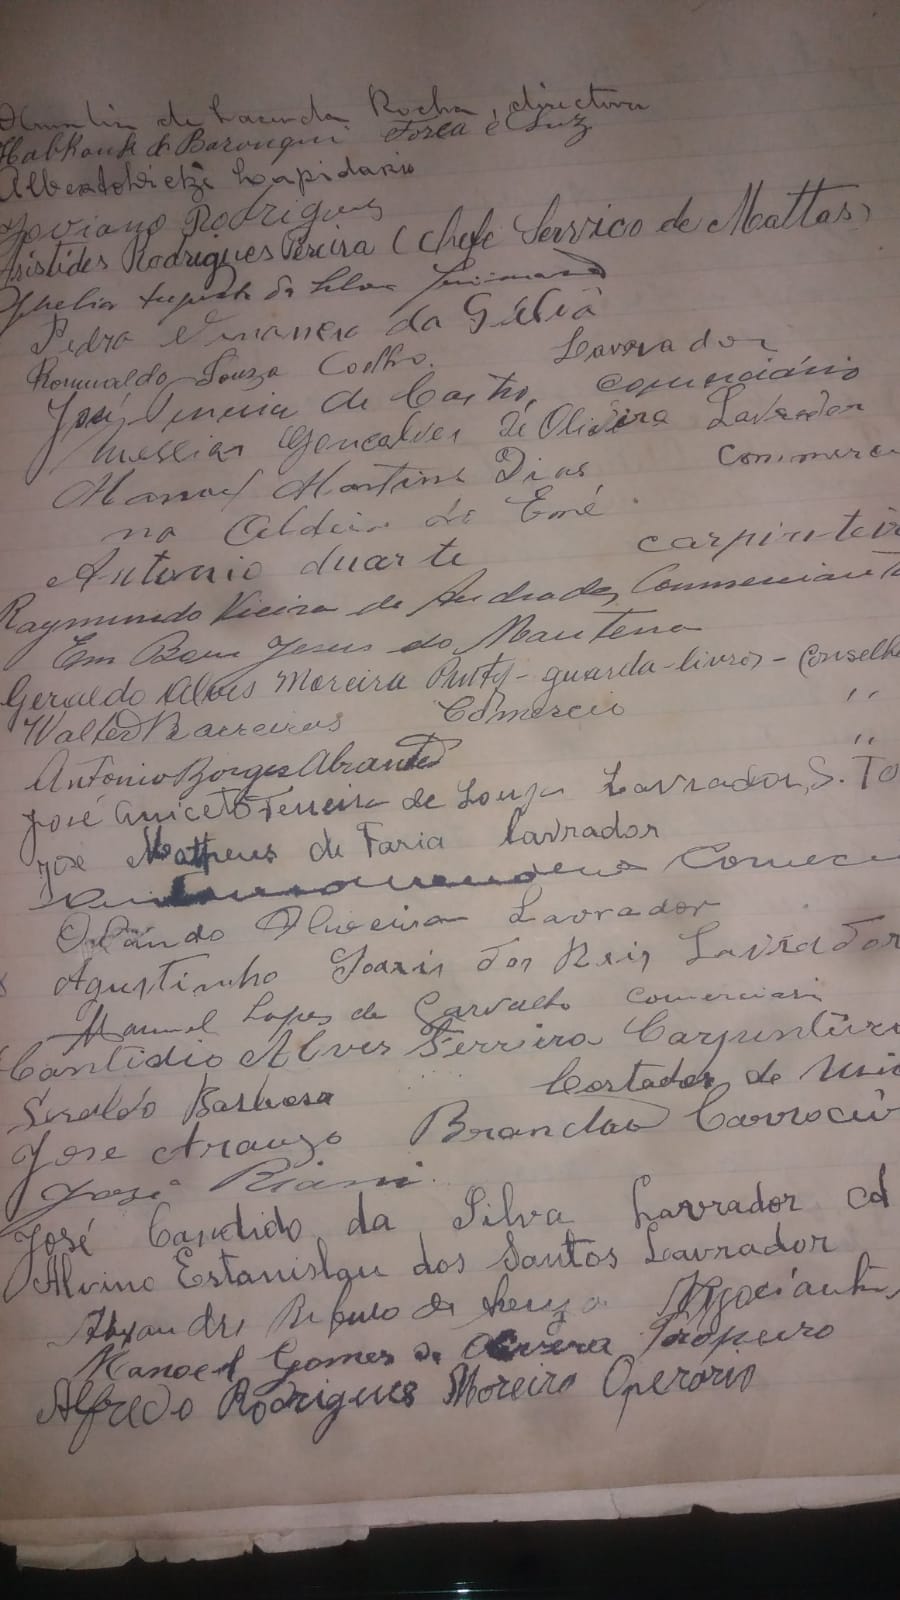 de Lacerda Rocha, directora
de Força e Luz
Lapidario
Joviano Rodrigues
Aristides Rodrigues Pereira (Chefe Servico de Mattas)
da Silva
Pedro da
Romualdo Souza Coelho. Lavrador
José de Castro, comerciário
Messias Gonçalves de Oliveira Lavrador
Manoel Martins Dias Commerci
na Aldeia do Emé.
Antonio duarte carpinteir
Raymundo Vieira de Andrade, Commerciant
Em Bom Jesus do Mantena
Geraldo Alves Moreira Putty - guarda-livros - Conselh
Walter Barreiros Comercio ,,
Antonio Borges Abrantes ,,
José Aniceto Ferreira de Souza Lavrador, S. To
José Matheus de Faria lavrador
Oliveira Lavrador
Agustinho dos Reis Lavrador
Manuel Lopes de Carvalho
Cantidio Alves Ferreira Carpinteiro
Geraldo Barbosa Cortador de
José Araujo Brandão
José Riani.
José Candido da Silva Lavrador cd
Alvino Estanislau dos Santos Lavrador
de Souza Negociante,
Manoel Gomes de Tropeiro
Alfredo Rodrigues Moreira Operario